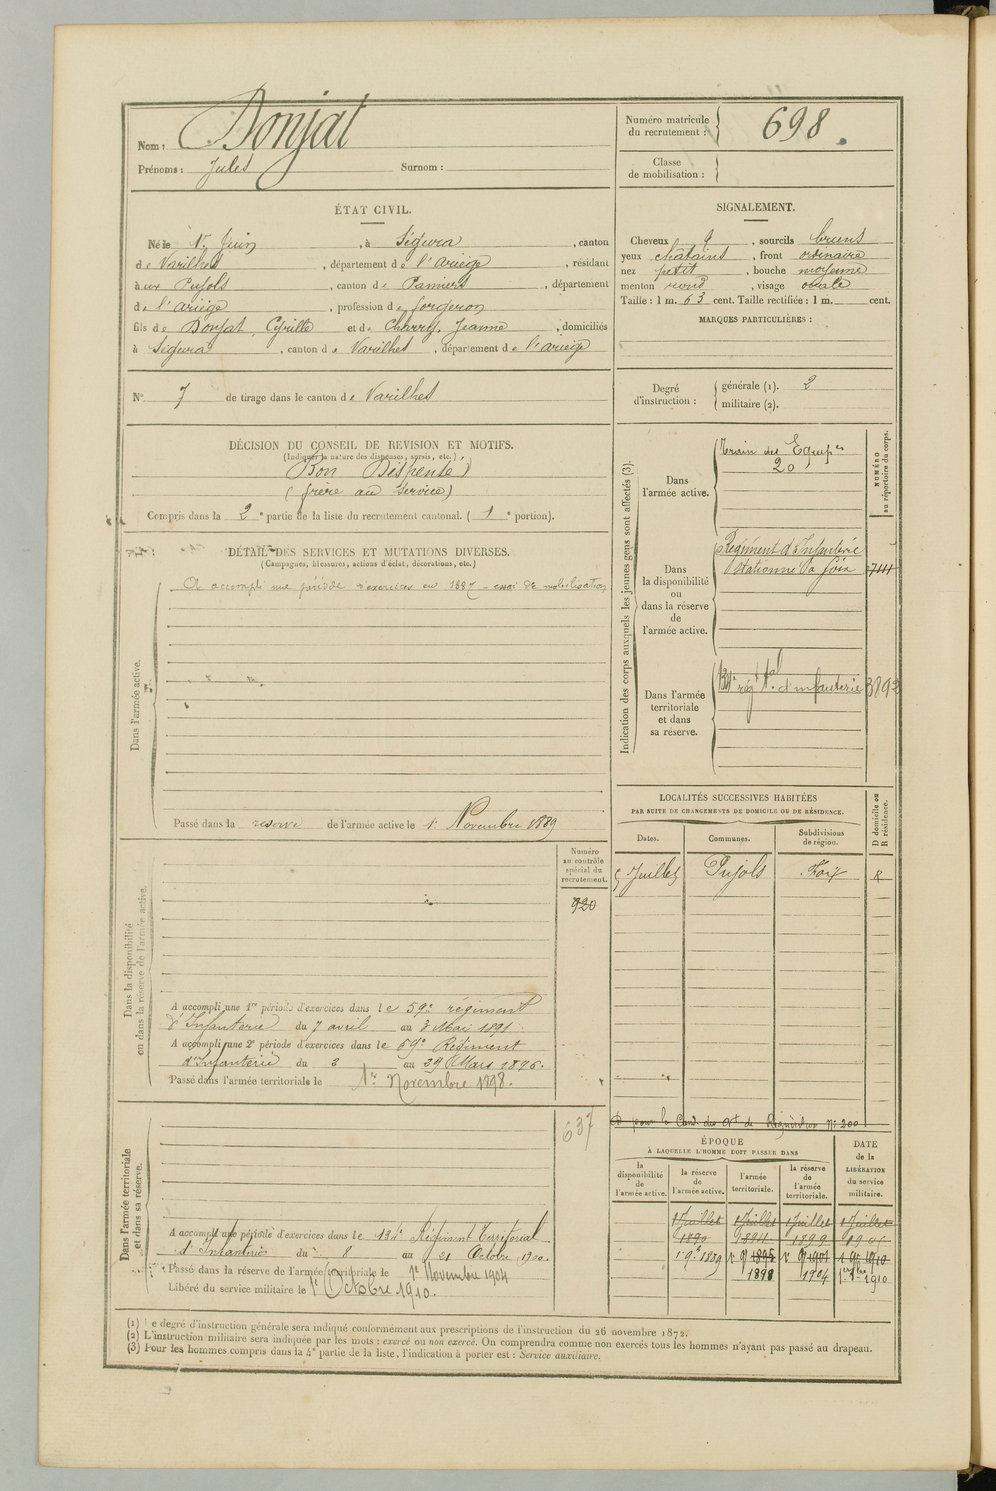 Nom : Donjat
Prénoms : Jules Surnom :
Numéro matricule
du recrutement : 698.
Classe
de mobilisation :
ÉTAT CIVIL.
Né le 1er Juin, à Ségura, canton
de Varilhes, département de l'Ariège, résidant
aux Pujols, canton de Pamiers, département
de l'Ariège, profession de forgeron
fils de Donjat Cyrille et de Charry Jeanne, domiciliés
à Ségura, canton de Varilhes, département de l'Ariège
N° 7 de tirage dans le canton de Varilhes
SIGNALEMENT.
Cheveux, sourcils bruns
yeux châtains, front ordinaire
nez petit, bouche moyenne
menton rond, visage ovale
Taille : 1 m. 63 cent. Taille rectifiée : 1 m. cent.
MARQUES PARTICULIÈRES :
Degré
d'instruction :
générale (1). 2
militaire (2).
DÉCISION DU CONSEIL DE REVISION ET MOTIFS.
(Indiquer la nature des dispenses, sursis, etc.)
Bon Dispensé
(frère au service)
Compris dans la 2e partie de la liste du recrutement cantonal. (1e portion).
DÉTAIL DES SERVICES ET MUTATIONS DIVERSES.
(Campagnes, blessures, actions d'éclat, décorations, etc.)
Dans l'armée active.
A accompli une période d'exercices en 1887 - essai de mobilisation
Passé dans la réserve de l'armée active le 1er Novembre 1889
Indication des corps auxquels les jeunes gens sont affectés (3).
NUMÉRO
au répertoire du corps.
Dans
l'armée active.
Train des Equip.es
20
Dans
la disponibilité
ou
dans la réserve
de
l'armée active.
Régiment d'Infanterie
Stationné à Foix
Dans l'armée
territoriale
et dans
sa réserve.
134e rég t tal d'infanterie
LOCALITÉS SUCCESSIVES HABITÉES
PAR SUITE DE CHANGEMENTS DE DOMICILE OU DE RÉSIDENCE.
Dates. Communes. Subdivisions
de région.
D domicile ou
R résidence.
Juillet Pujols Foix R
Dans la disponibilité
ou dans la réserve de l'armée active.
Numéro
au contrôle
spécial du
recrutement.
920
A accompli une 1re période d'exercices dans le 59e régiment
d'Infanterie du 7 avril au 4 Mai 1891
A accompli une 2e période d'exercices dans le 59e Régiment
d'Infanterie du 2 au 29 Mars 1896.
Passé dans l'armée territoriale le 1er Novembre 1898.
Dans l'armée territoriale
et dans sa réserve.
637
A accompli une période d'exercices dans le 134e Régiment Territorial
d'Infanterie du 8 au 21 Octobre 1900.
Passé dans la réserve de l'armée territoriale le 1er Novembre 1904
Libéré du service militaire le 1er Octobre 1910.
ÉPOQUE
À LAQUELLE L'HOMME DOIT PASSER DANS
la
disponibilité
de
l'armée active.
la réserve
de
l'armée active.
l'armée
territoriale.
la réserve
de
l'armée
territoriale.
DATE
de la
LIBÉRATION
du service
militaire.
1 Juillet 1 Juillet 1 Juillet 1 Juillet
1890 1899
1889 1895 1901 1910
1898 1904 1910
(1) Le degré d'instruction générale sera indiqué conformément aux prescriptions de l'instruction du 26 novembre 1872.
(2) L'instruction militaire sera indiquée par les mots : exercé ou non exercé. On comprendra comme non exercés tous les hommes n'ayant pas passé au drapeau.
(3) Pour les hommes compris dans la 4e partie de la liste, l'indication à porter est : Service auxiliaire.